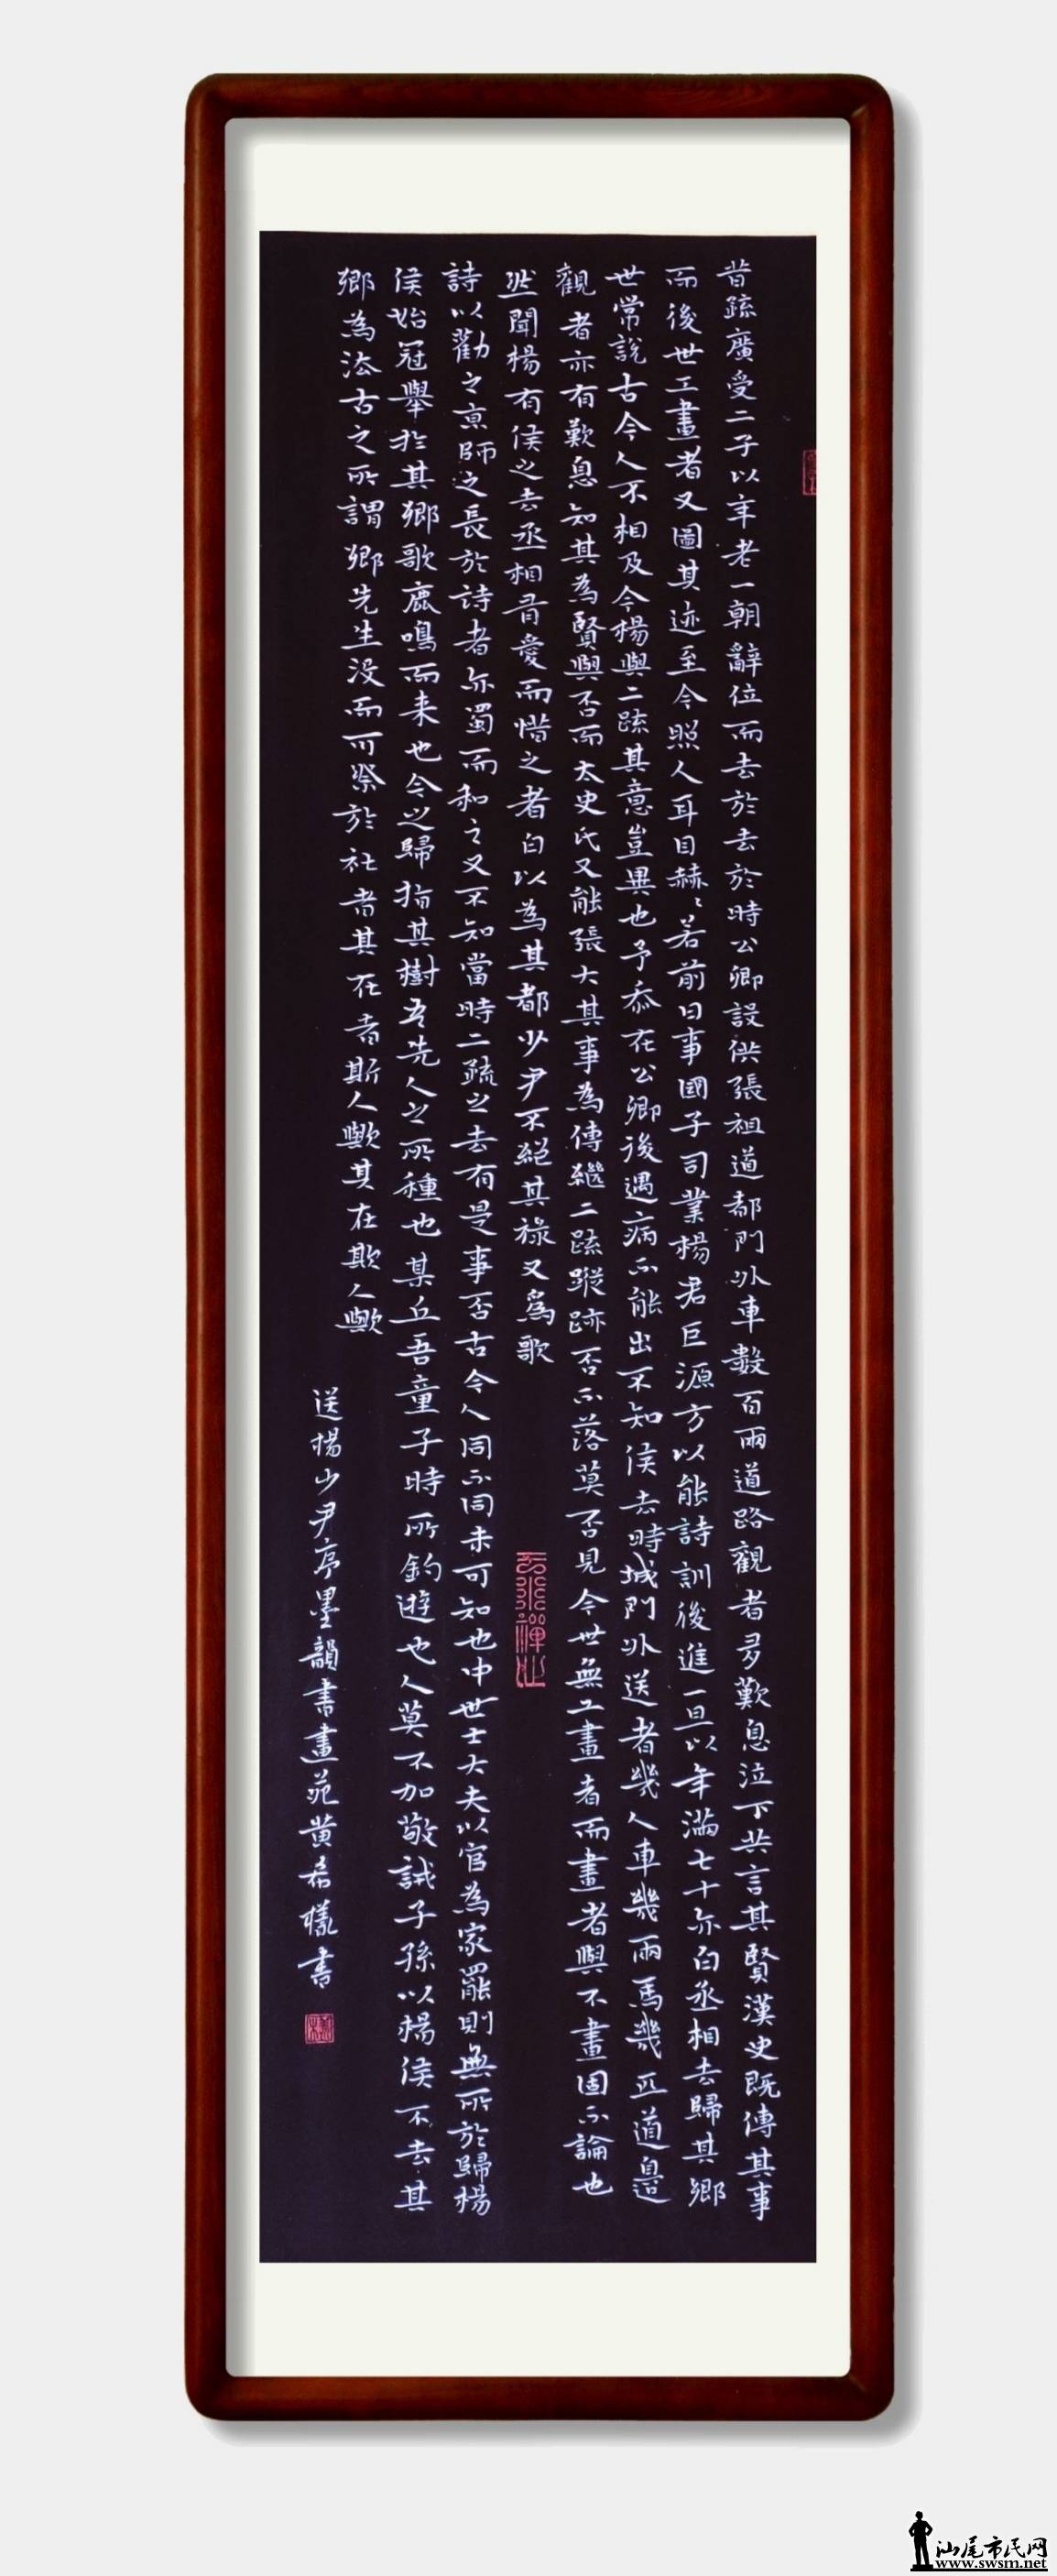 昔疏廣受二子以年老一朝辭位而去於去於時公卿設供張祖道都門外車數百兩道路觀者多歎息泣下共言其賢漢史既傳其事
而後世工畫者又圖其迹至今照人耳目赫〻若前日事國子司業楊君巨源方以能詩訓後進一旦以年滿七十亦白丞相去歸其鄉
世常說古今人不相及今楊與二疏其意豈異也予忝在公卿後遇病不能出不知侯去時城門外送者幾人車幾兩馬幾匹道邊
觀者亦有歎息知其為賢與否而太史氏又能張大其事為傳繼二疏蹤跡否不落莫否見今世無工畫者而畫者與不畫固不論也
然聞楊有侯之去丞相有愛而惜之者白以為其都少尹不絕其祿又為歌
詩以勸之京師之長於詩者亦屬而和之又不知當時二疏之去有是事否古今人同不同未可知也中世士大夫以官為家罷則無所於歸楊
侯始冠舉於其鄉歌鹿鳴而来也今之歸指其樹吾先人之所種也某丘吾童子時所釣遊也人莫不加敬誡子孫以楊侯不去其
鄉為法古之所謂鄉先生没而可祭於社者其在者斯人歟其在欺人歟
送楊少尹序墨韻書畫苑黄希檥書
汕尾市民网
www.swsm.net